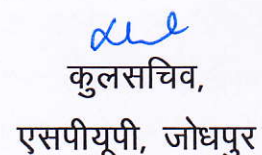 कुलसचिव,
एसपीयूपी, जोधपुर